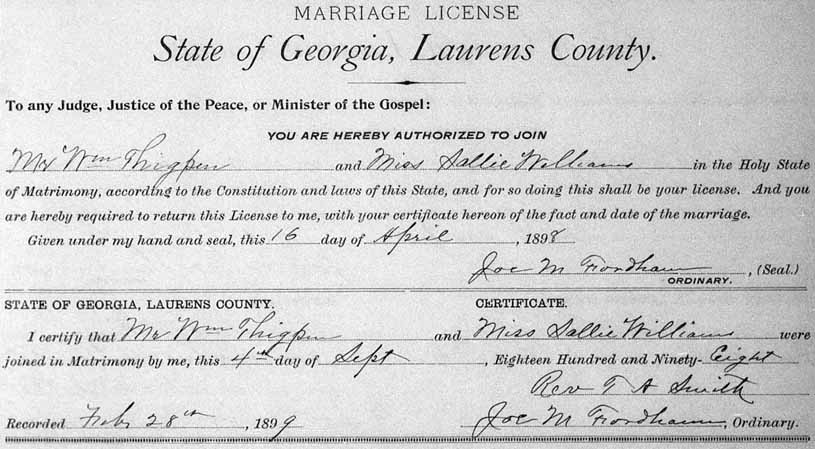 MARRIAGE LICENSE
State of Georgia, Laurens County.
To any Judge, Justice of the Peace, or Minister of the Gospel:
YOU ARE HEREBY AUTHORIZED TO JOIN
Mr Wm Thigpen and Miss Sallie Williams in the Holy State
of Matrimony, according to the Constitution and laws of this State, and for so doing this shall be your license. And you
are hereby required to return this License to me, with your certificate hereon of the fact and date of the marriage.
Given under my hand and seal, this 16 day of April, 1898
Joe M Fordham, (Seal.)
ORDINARY.
STATE OF GEORGIA, LAURENS COUNTY. CERTIFICATE.
I certify that Mr Wm Thigpen and Miss Sallie Williams were
joined in Matrimony by me, this 4th day of Sept, Eighteen Hundred and Ninety-Eight
Rev T A Smith
Recorded Feb 28th, 1899 Joe M Fordham, Ordinary.